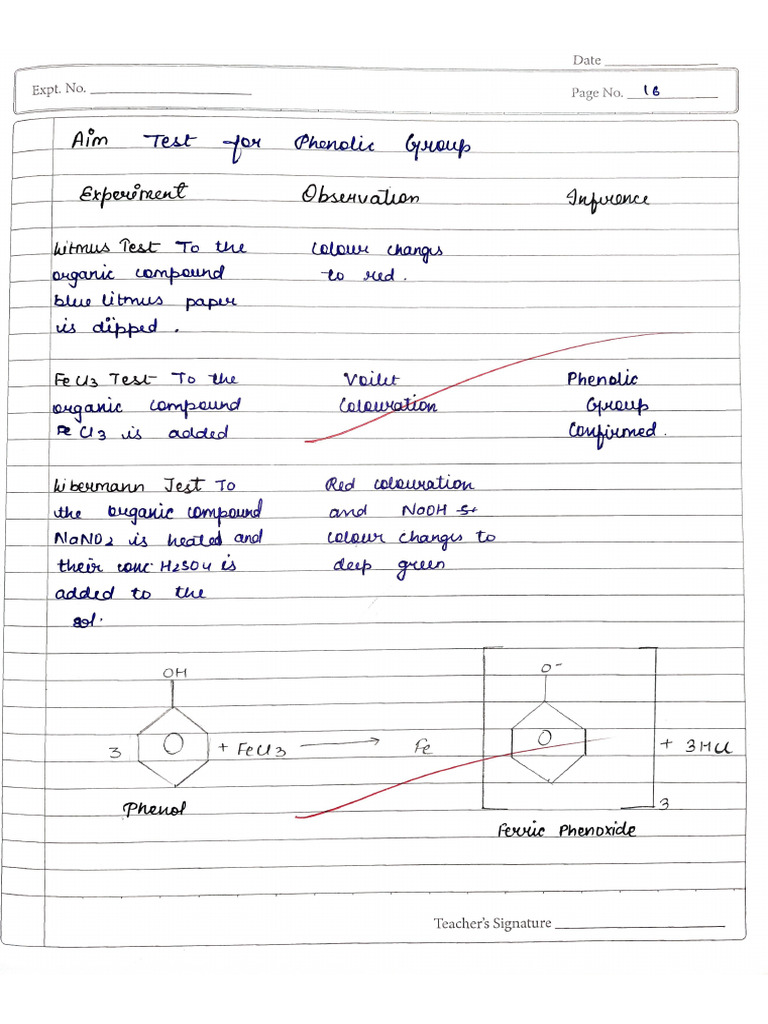 Date
Expt. No.
Page No. 16
Aim Test for Phenolic Group
Experiment Observation Inference
Litmus Test To the colour changes
organic compound to red.
blue litmus paper
is dipped.
FeCl3 Test To the Voilet Phenolic
organic compound Colouration Group
FeCl3 is added Confirmed.
Libermann Test To Red colouration
the organic compound and NaOH
NaNO2 is heated and colour changes to
their conc. H2SO4 is deep green
added to the
sol.
OH O-
3 + FeCl3 → Fe + 3HCl
3
Phenol
Ferric Phenoxide
Teacher's Signature